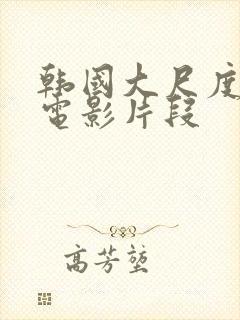 韩國大尺度
電影片段
高芳堃